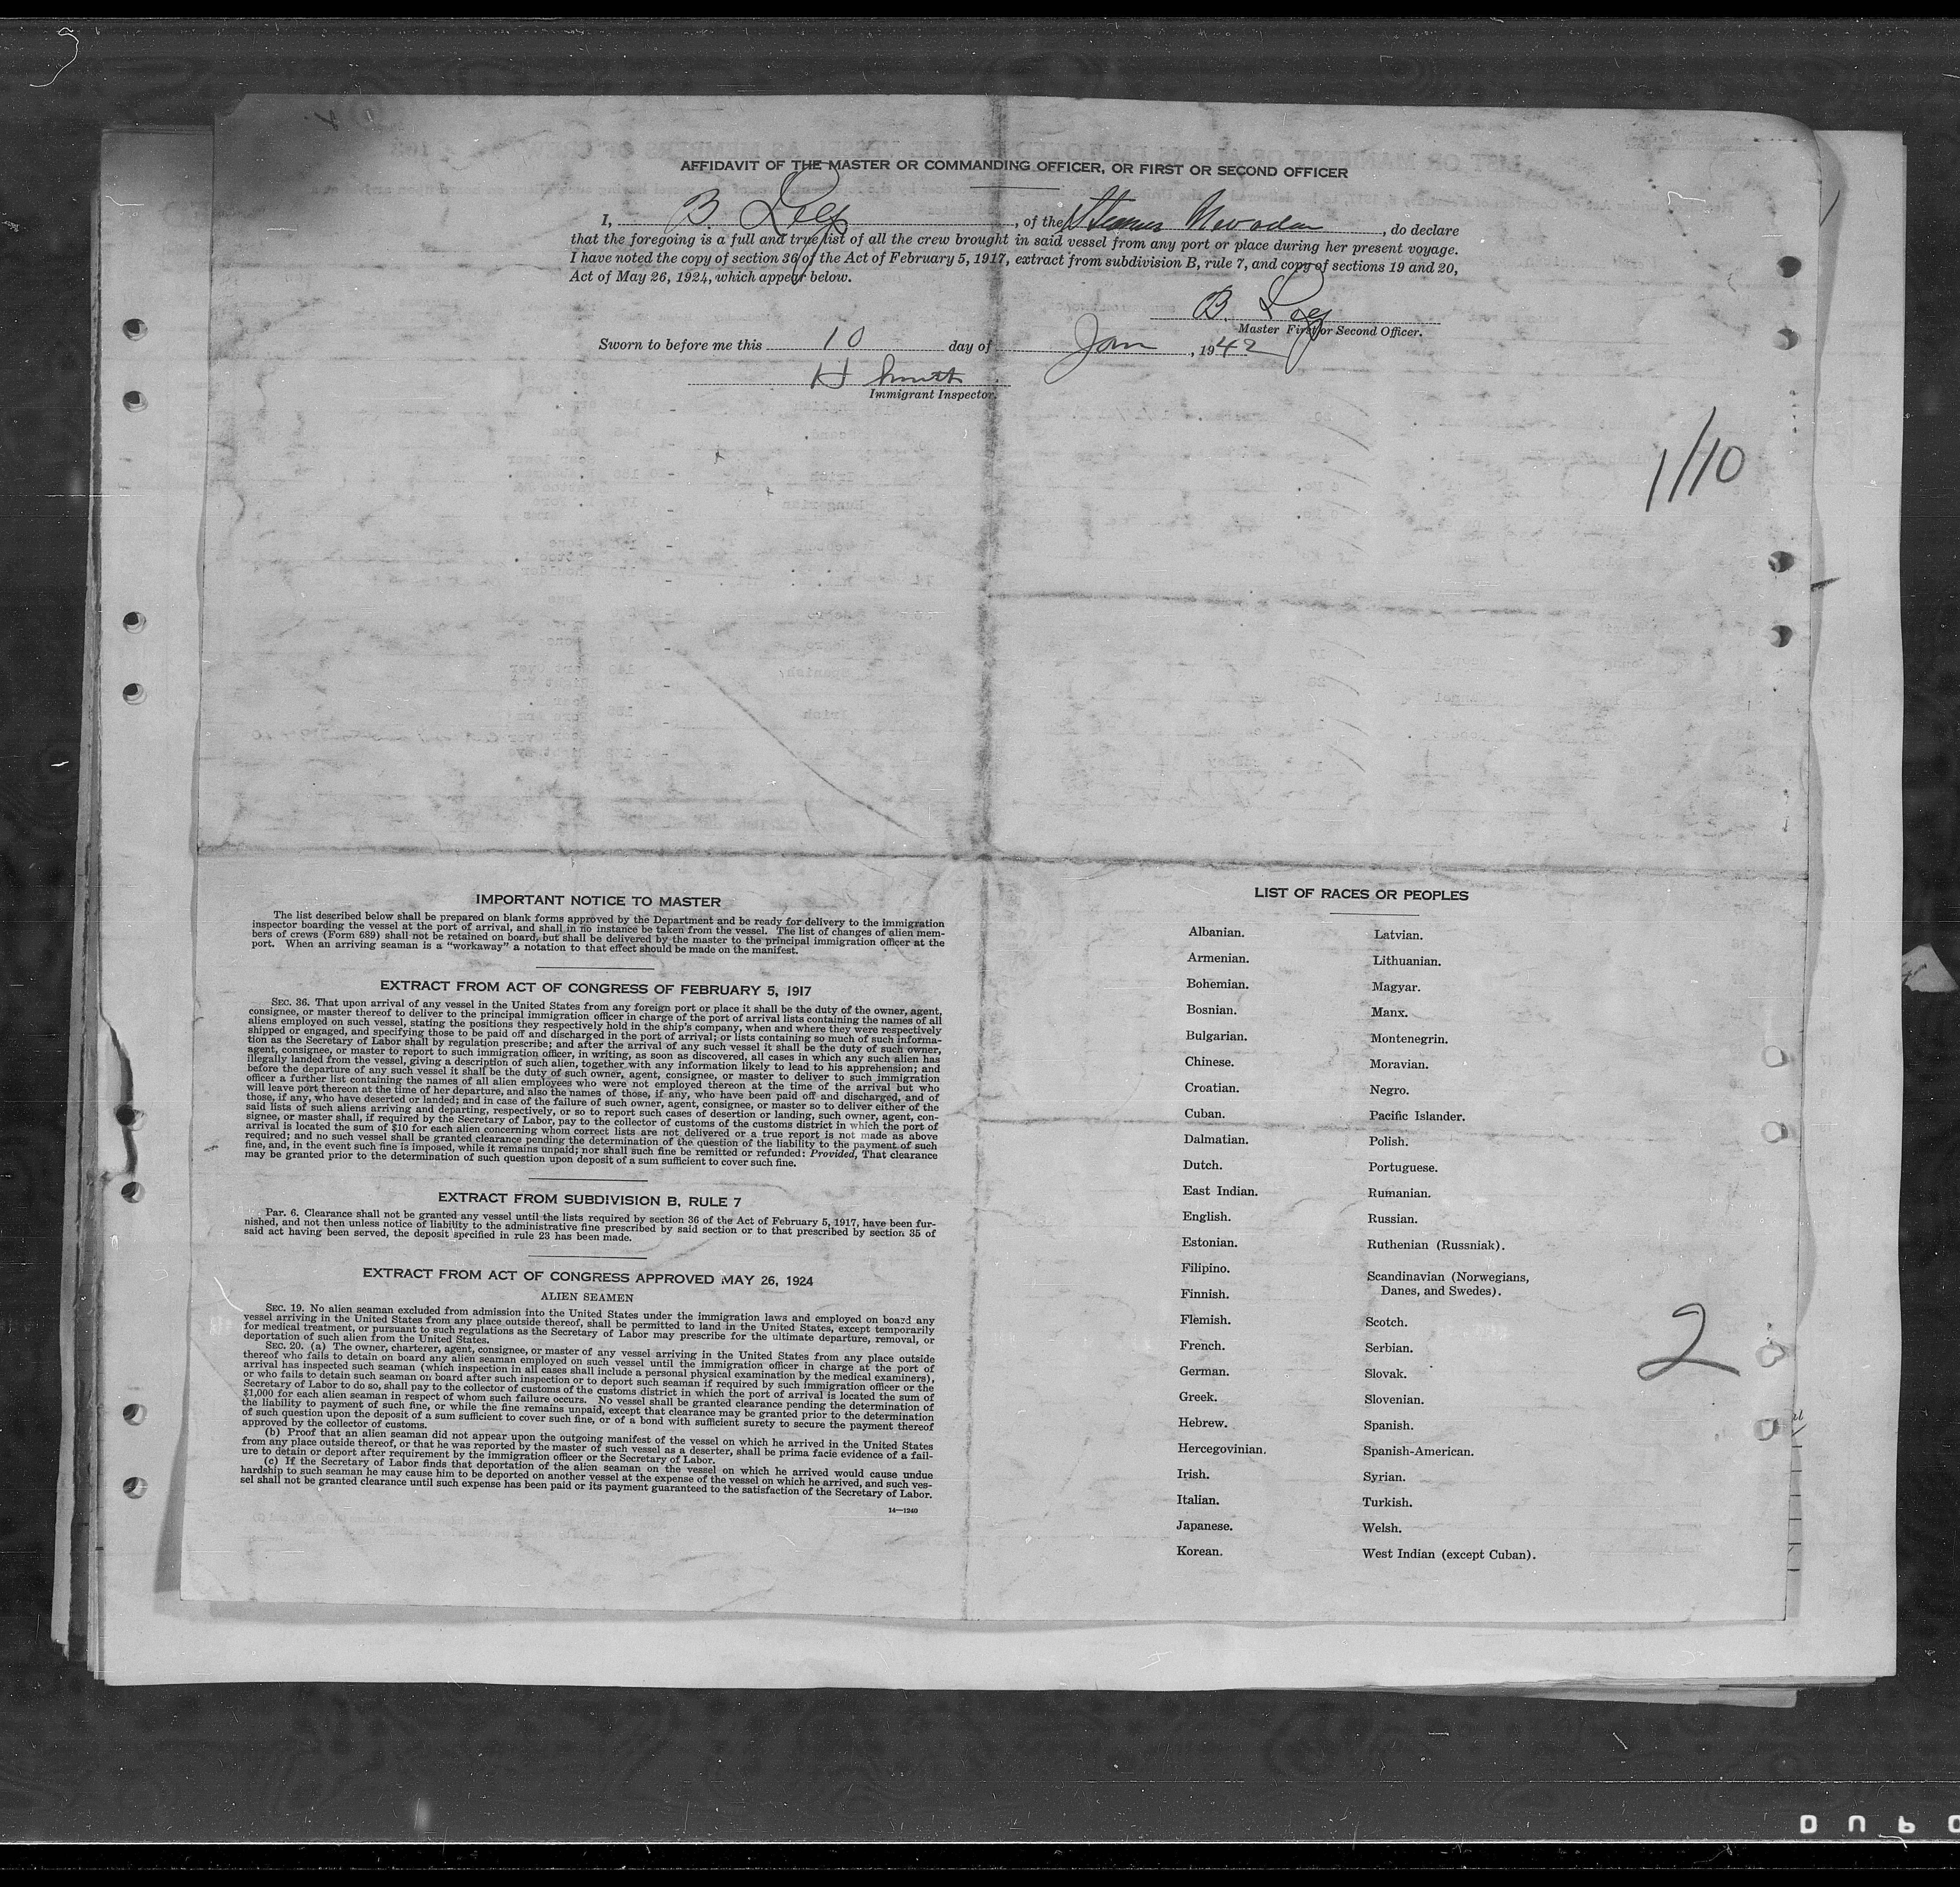 AFFIDAVIT OF THE MASTER OR COMMANDING OFFICER, OR FIRST OR SECOND OFFICER
I, B. , of the Steamer , do declare
that the foregoing is a full and true list of all the crew brought in said vessel from any port or place during her present voyage.
I have noted the copy of section 36 of the Act of February 5, 1917, extract from subdivision B, rule 7, and copy of sections 19 and 20,
Act of May 26, 1924, which appear below.
B.
Master First or Second Officer.
Sworn to before me this 10 day of Jan , 1942
H Smith
Immigrant Inspector.
1/10
IMPORTANT NOTICE TO MASTER
The list described below shall be prepared on blank forms approved by the Department and be ready for delivery to the immigration
inspector boarding the vessel at the port of arrival, and shall in no instance be taken from the vessel. The list of changes of alien mem-
bers of crews (Form 689) shall not be retained on board, but shall be delivered by the master to the principal immigration officer at the
port. When an arriving seaman is a "workaway" a notation to that effect should be made on the manifest.
EXTRACT FROM ACT OF CONGRESS OF FEBRUARY 5, 1917
SEC. 36. That upon arrival of any vessel in the United States from any foreign port or place it shall be the duty of the owner, agent,
consignee, or master thereof to deliver to the principal immigration officer in charge of the port of arrival lists containing the names of all
aliens employed on such vessel, stating the positions they respectively hold in the ship's company, when and where they were respectively
shipped or engaged, and specifying those to be paid off and discharged in the port of arrival; or lists containing so much of such informa-
tion as the Secretary of Labor shall by regulation prescribe; and after the arrival of any such vessel it shall be the duty of such owner,
agent, consignee, or master to report to such immigration officer, in writing, as soon as discovered, all cases in which any such alien has
illegally landed from the vessel, giving a description of such alien, together with any information likely to lead to his apprehension; and
before the departure of any such vessel it shall be the duty of such owner, agent, consignee, or master to deliver to such immigration
officer a further list containing the names of all alien employees who were not employed thereon at the time of the arrival but who
will leave port thereon at the time of her departure, and also the names of those, if any, who have been paid off and discharged, and of
those, if any, who have deserted or landed; and in case of the failure of such owner, agent, consignee, or master so to deliver either of the
said lists of such aliens arriving and departing, respectively, or so to report such cases of desertion or landing, such owner, agent, con-
signee, or master shall, if required by the Secretary of Labor, pay to the collector of customs of the customs district in which the port of
arrival is located the sum of $10 for each alien concerning whom correct lists are not delivered or a true report is not made as above
required; and no such vessel shall be granted clearance pending the determination of the question of the liability to the payment of such
fine, and, in the event such fine is imposed, while it remains unpaid; nor shall such fine be remitted or refunded: Provided, That clearance
may be granted prior to the determination of such question upon deposit of a sum sufficient to cover such fine.
EXTRACT FROM SUBDIVISION B, RULE 7
Par. 6. Clearance shall not be granted any vessel until the lists required by section 36 of the Act of February 5, 1917, have been fur-
nished, and not then unless notice of liability to the administrative fine prescribed by said section or to that prescribed by section 35 of
said act having been served, the deposit specified in rule 23 has been made.
EXTRACT FROM ACT OF CONGRESS APPROVED MAY 26, 1924
ALIEN SEAMEN
SEC. 19. No alien seaman excluded from admission into the United States under the immigration laws and employed on board any
vessel arriving in the United States from any place outside thereof, shall be permitted to land in the United States, except temporarily
for medical treatment, or pursuant to such regulations as the Secretary of Labor may prescribe for the ultimate departure, removal, or
deportation of such alien from the United States.
SEC. 20. (a) The owner, charterer, agent, consignee, or master of any vessel arriving in the United States from any place outside
thereof who fails to detain on board any alien seaman employed on such vessel until the immigration officer in charge at the port of
arrival has inspected such seaman (which inspection in all cases shall include a personal physical examination by the medical examiners),
or who fails to detain such seaman on board after such inspection or to deport such seaman if required by such immigration officer or the
Secretary of Labor to do so, shall pay to the collector of customs of the customs district in which the port of arrival is located the sum of
$1,000 for each alien seaman in respect of whom such failure occurs. No vessel shall be granted clearance pending the determination of
the liability to payment of such fine, or while the fine remains unpaid, except that clearance may be granted prior to the determination
of such question upon the deposit of a sum sufficient to cover such fine, or of a bond with sufficient surety to secure the payment thereof
approved by the collector of customs.
(b) Proof that an alien seaman did not appear upon the outgoing manifest of the vessel on which he arrived in the United States
from any place outside thereof, or that he was reported by the master of such vessel as a deserter, shall be prima facie evidence of a fail-
ure to detain or deport after requirement by the immigration officer or the Secretary of Labor.
(c) If the Secretary of Labor finds that deportation of the alien seaman on the vessel on which he arrived would cause undue
hardship to such seaman he may cause him to be deported on another vessel at the expense of the vessel on which he arrived, and such ves-
sel shall not be granted clearance until such expense has been paid or its payment guaranteed to the satisfaction of the Secretary of Labor.
14—1240
LIST OF RACES OR PEOPLES
Albanian.
Armenian.
Bohemian.
Bosnian.
Bulgarian.
Chinese.
Croatian.
Cuban.
Dalmatian.
Dutch.
East Indian.
English.
Estonian.
Filipino.
Finnish.
Flemish.
French.
German.
Greek.
Hebrew.
Hercegovinian.
Irish.
Italian.
Japanese.
Korean.
Latvian.
Lithuanian.
Magyar.
Manx.
Montenegrin.
Moravian.
Negro.
Pacific Islander.
Polish.
Portuguese.
Rumanian.
Russian.
Ruthenian (Russniak).
Scandinavian (Norwegians,
Danes, and Swedes).
Scotch.
Serbian.
Slovak.
Slovenian.
Spanish.
Spanish-American.
Syrian.
Turkish.
Welsh.
West Indian (except Cuban).
2